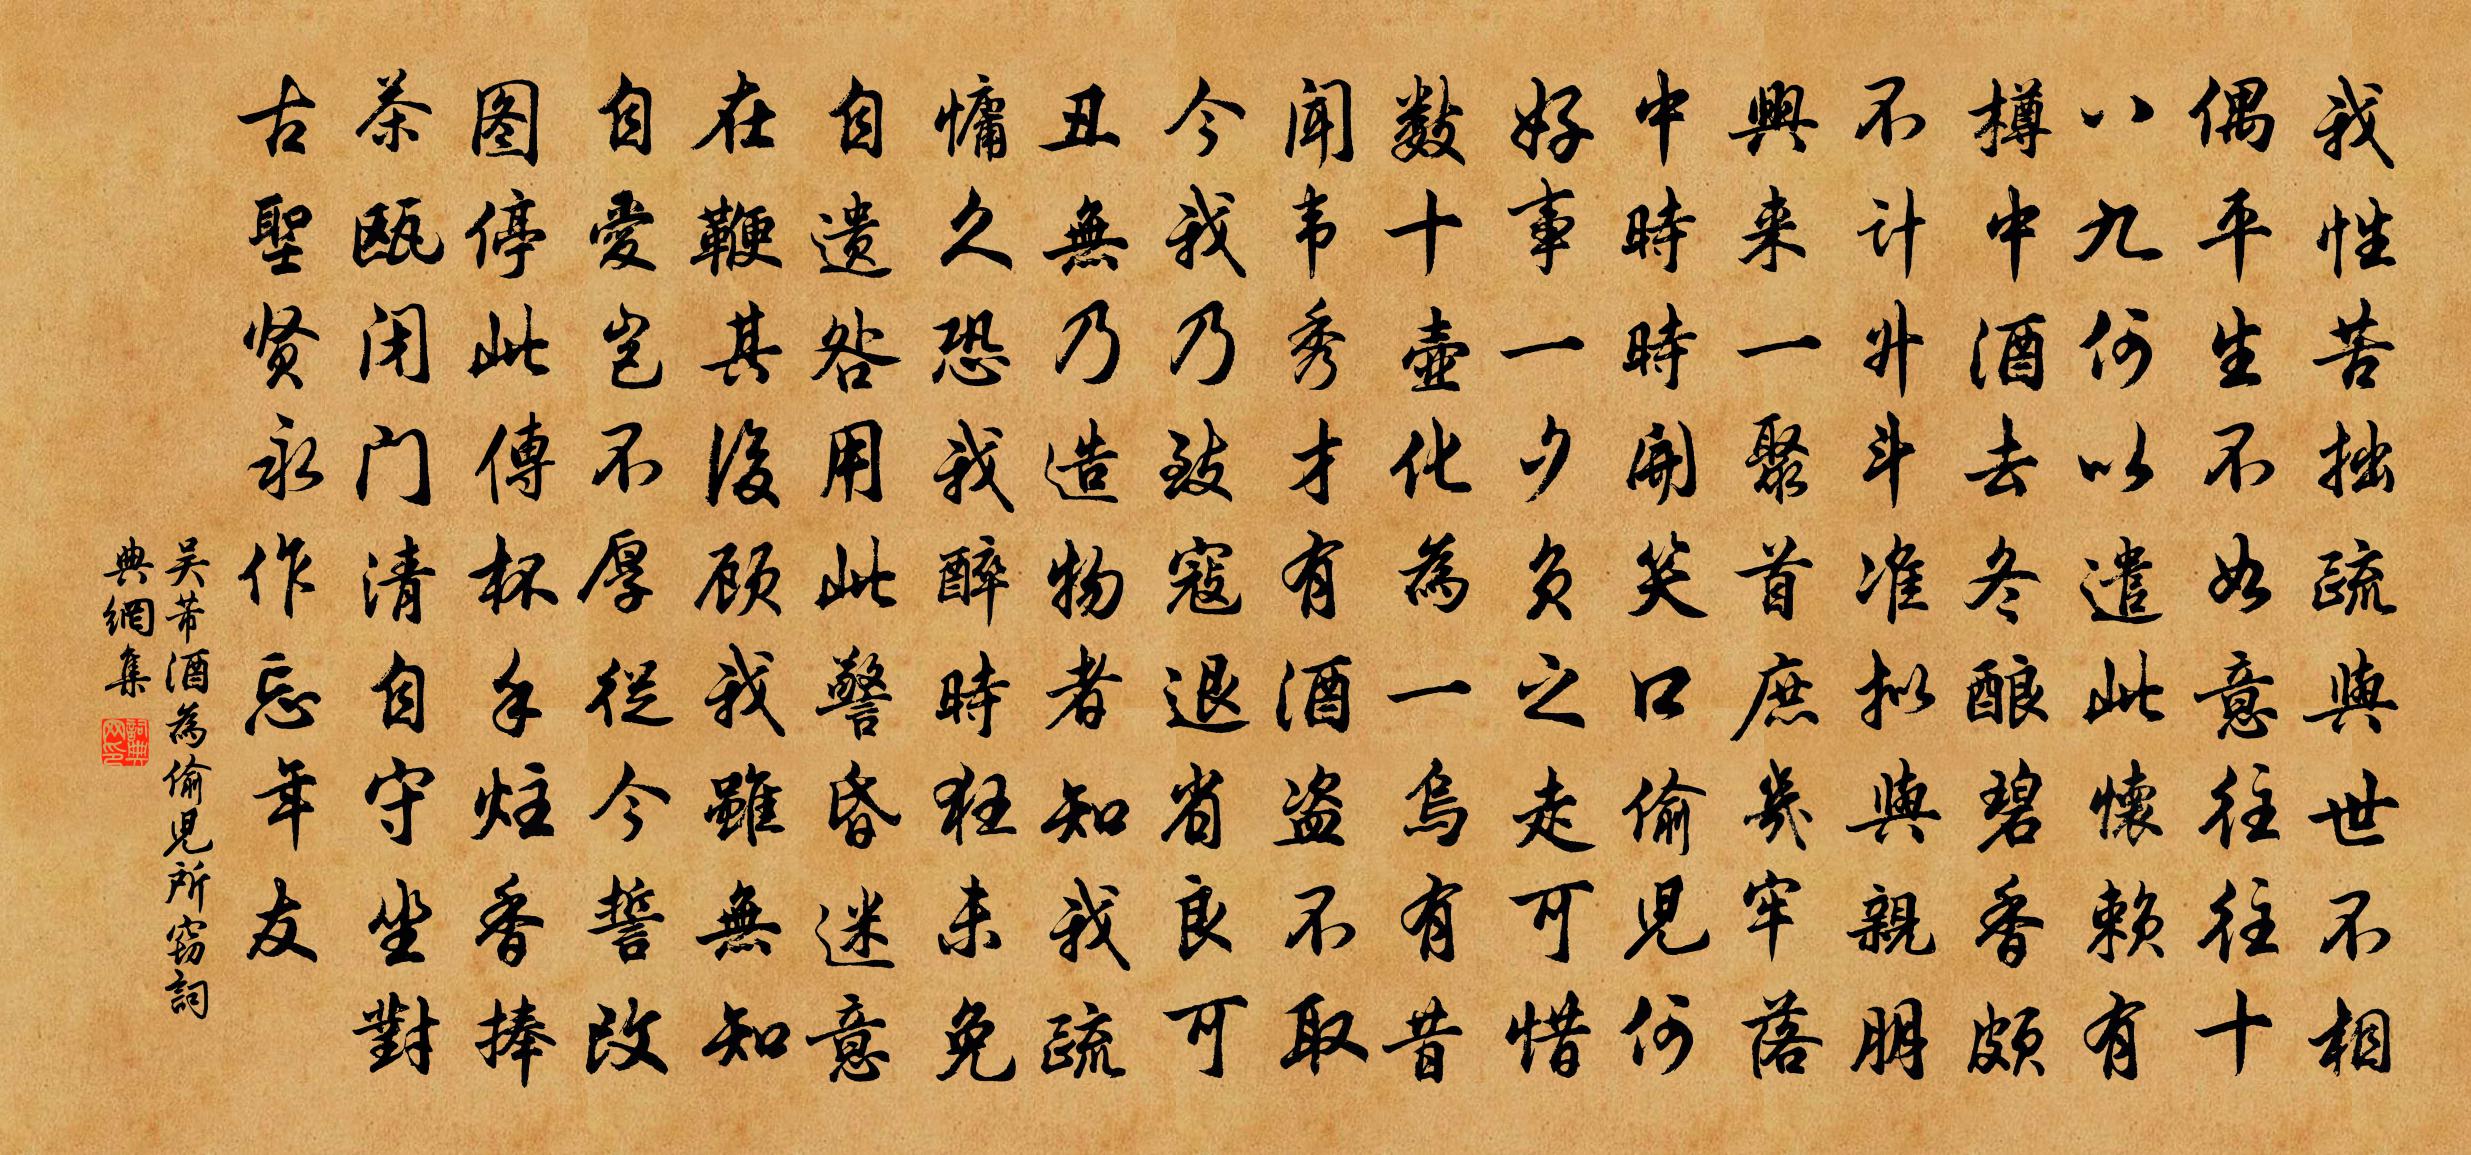 我性苦拙疏與世不相
偶平生不如意往往十
八九何以遣此懷賴有
樽中酒去冬酿碧香頗
不計升斗准拟與親朋
興来一聚首庶幾牢落
中時時開笑口偷児何
好事一夕负之走可惜
数十壷化為一烏有昔
闻韦秀才有酒盗不取
今我乃致寇退省良可
丑無乃造物者知我疏
慵久恐我醉時狂未免
自遗咎用此警昏迷意
在鞭其後顾我雖無知
自愛岂不厚從今誓改
图停此傳杯手炷香捧
茶瓯闭门清自守坐對
古聖贤永作忘年友
吴芾酒為偷児所窃詞
典網集
詞典網印